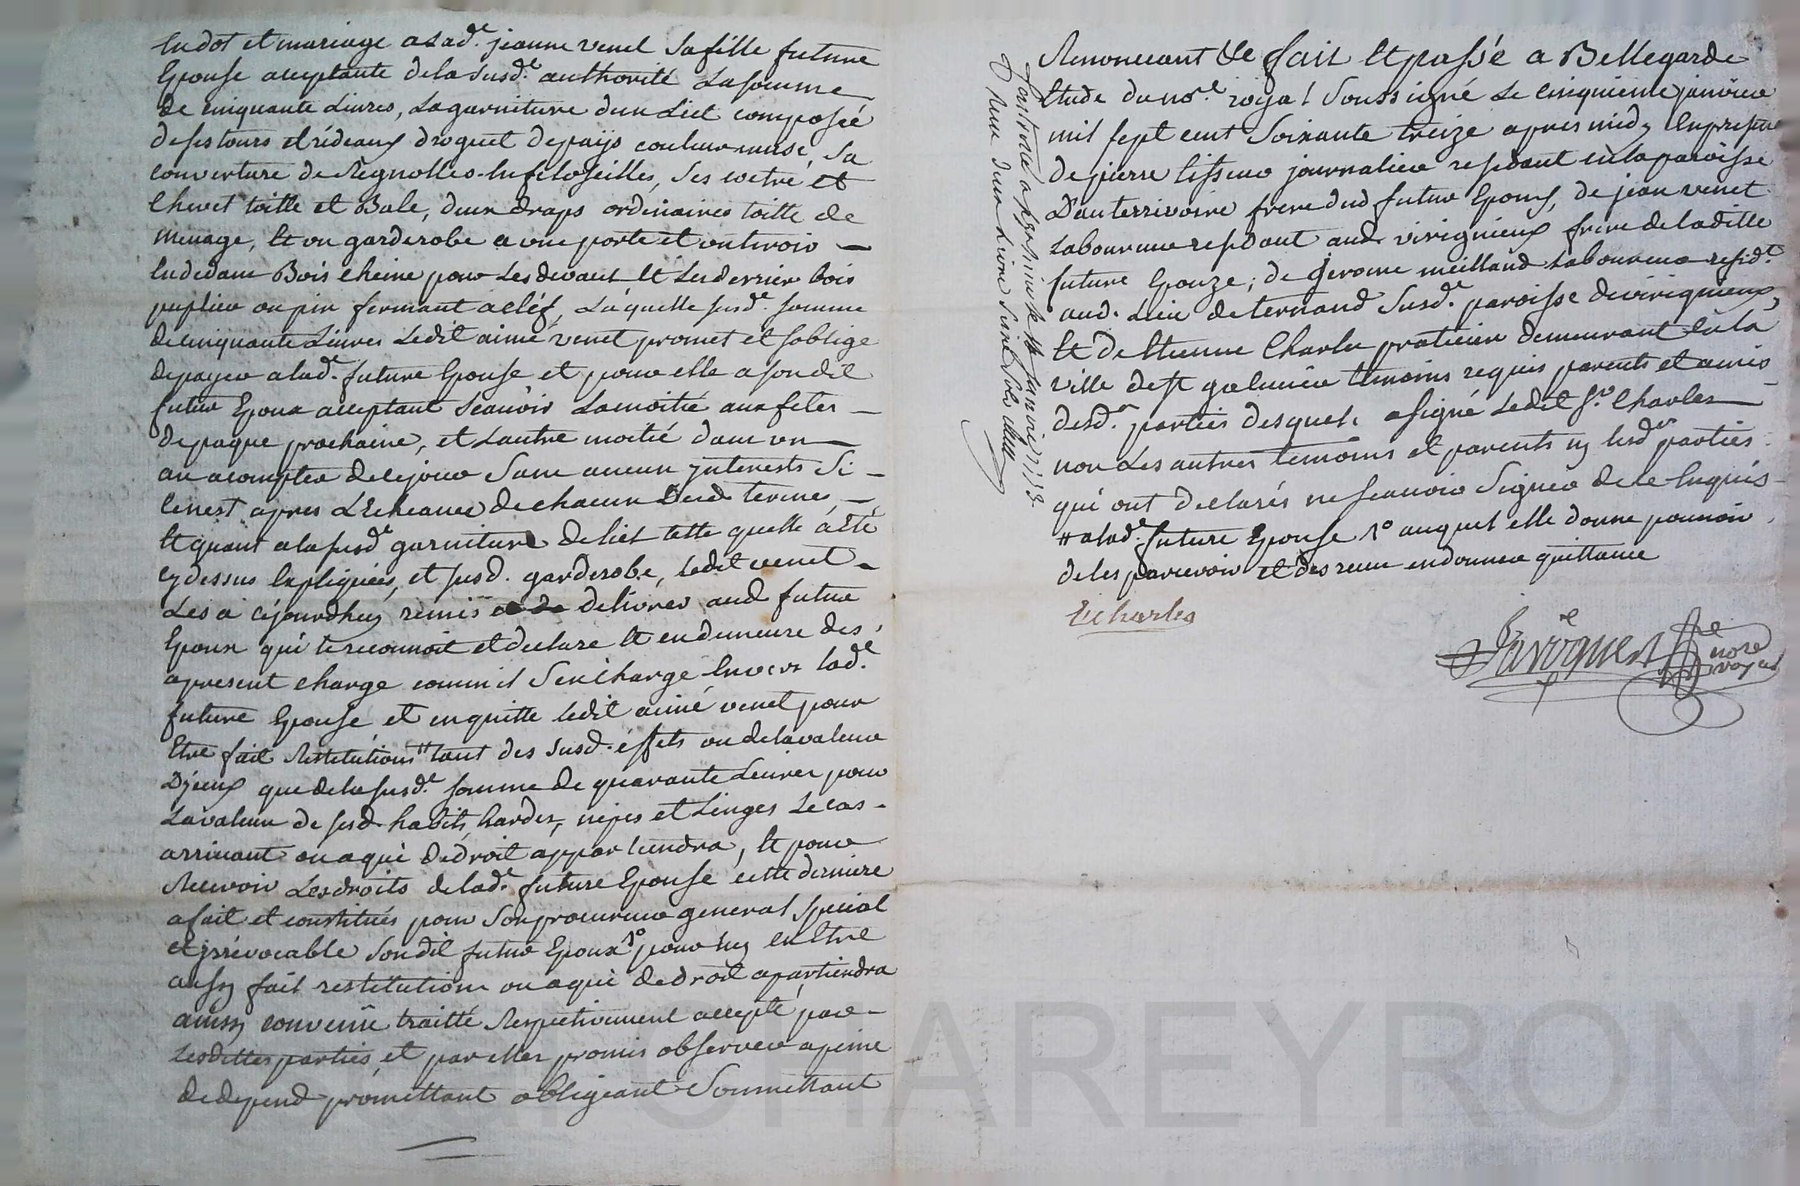 En dot et mariage a lad.e jeanne venet sa fille future
Epouse acceptante de la susd.e authorité La somme
de cinquante Livres, La garniture d'un Lict composée
de ses tours et rideaux droguet de païs couleur muse, sa
couverture de Regnolles filoseilles, ses coetre et
Chevet toille et Bale, deux draps ordinaires toille de
menage, Et un garderobe a une porte et un tiroir
bois Cheine pour Les devant Et Les derrier bois
puplier ou pin fermant a cléf, Laquelle susd.e somme
de cinquante Livres Ledit aimé venet promet et soblige
de payer a lad.e future Epouse et pour elle a son dit
futur Epoux acceptant Scavoir La moitié aux fetes
de paque prochaine, et Lautre moitié dans un
an a compter de ce jour Sans aucun ynterests Si
ce nest apres L'Echeance de chacun Desd termes
Et quant a la susd.e garniture de lict telle quelle a Eté
cy dessus Expliquée, et susd. garderobe, ledit venet
Les a cejourdhuy remis et de delivrer aud futur
Epoux qui le reconnoit et declare Et en demeure des
apresent chargé comm'il s'en charge Envers lad.e
future Epouse et en quitte ledit aimé venet pour
Etre fait Restitutions # tant des susd. effets ou de la valeur
D'yceux que de la susd.e somme de quarante Livres pour
La valeur de sesd habits, hardes, nipes et Linges Le cas
arrivant ou a qui de droit appartiendra, Et pour
Recevoir Les droits de lad.e future Epouse cette derniere
a fait et constitués pour Son procureur general special
et irrévocable Son dit futur Epoux 1° pour luy en Etre
aussy fait restitutions ou a qui de droit apartiendra
ainsy convenu traitté Respectivement accepté par
Lesdittes parties, et par elles promis observer a peine
de depend promettant obligeant Soumettant
Renonceant &c fait Et passé a Bellegarde
Etude du no.re royal Soussigné Le cinquieme janvier
mil sept cent Soixante treize apres midy En presence
de pierre journalier residant en la paroisse
D'auterrivoire frere dud futur Epoux, de jean venet
Laboureur residant aud. virignieux frere de la ditte
future Epouze; de Jerome meilland Laboureur resid.t
aud. Lieu de ternand Susd.e paroisse de virignieux,
Et de Etienne Charles praticien demeurant En la
ville de st galmier temoins requis parents et amis
desd. parties desquels a signé Ledit S.r Charles
non Les autres temoins et parents ny lesd parties
qui ont declarés ne scavoir Signer de ce Enquis
# a lad.e future Epouse 1° auquel elle donne pouvoir
de les percevoir et des recus en donner quittance
E charles
no.re royal
janvier 1773
CHAREYRON